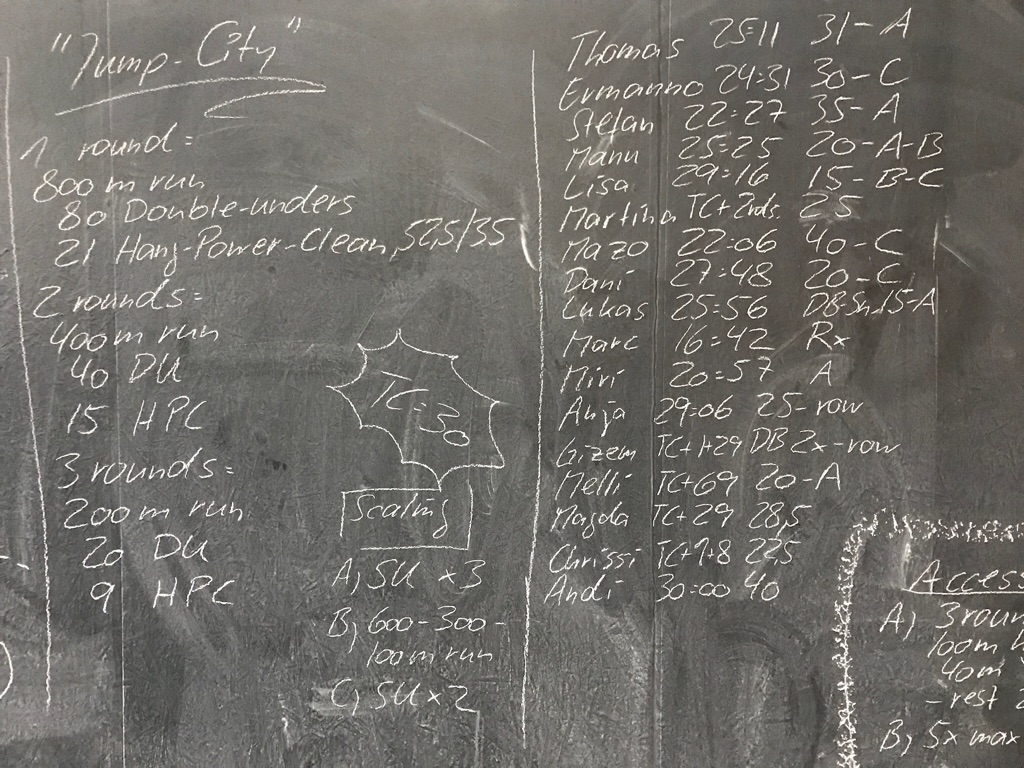 "Jump-City"
1 round:
800 m run
80 Double-unders
21 Hang-Power-Clean, 52,5/35
2 rounds:
400m run
40 DU
15 HPC
3 rounds:
200m run
20 DU
9 HPC
TC=30
Scaling
A) SU x3
B) 600-300-
100m run
C) SU x 2
Thomas 25:11 31-A
Ermanno 24:31 30-C
Stefan 22:27 35-A
Manu 25:25 20-A-B
Lisa 29:16 15-B-C
Martina TC+2rds. 25
Mazo 22:06 40-C
Dani 27:48 20-C
Lukas 25:56 DB Sn.15-A
Marc 16:42 Rx
Mini 20:57 A
Anja 29:06 25-row
Gizem TC+1+29 DB 2x-row
Melli TC+69 20-A
Magda TC+29 28,5
Chrissi TC+1+8 22,5
Andi 30:00 40
Access
A) 3 roun
100m
40m
- rest 2
B) 5x max